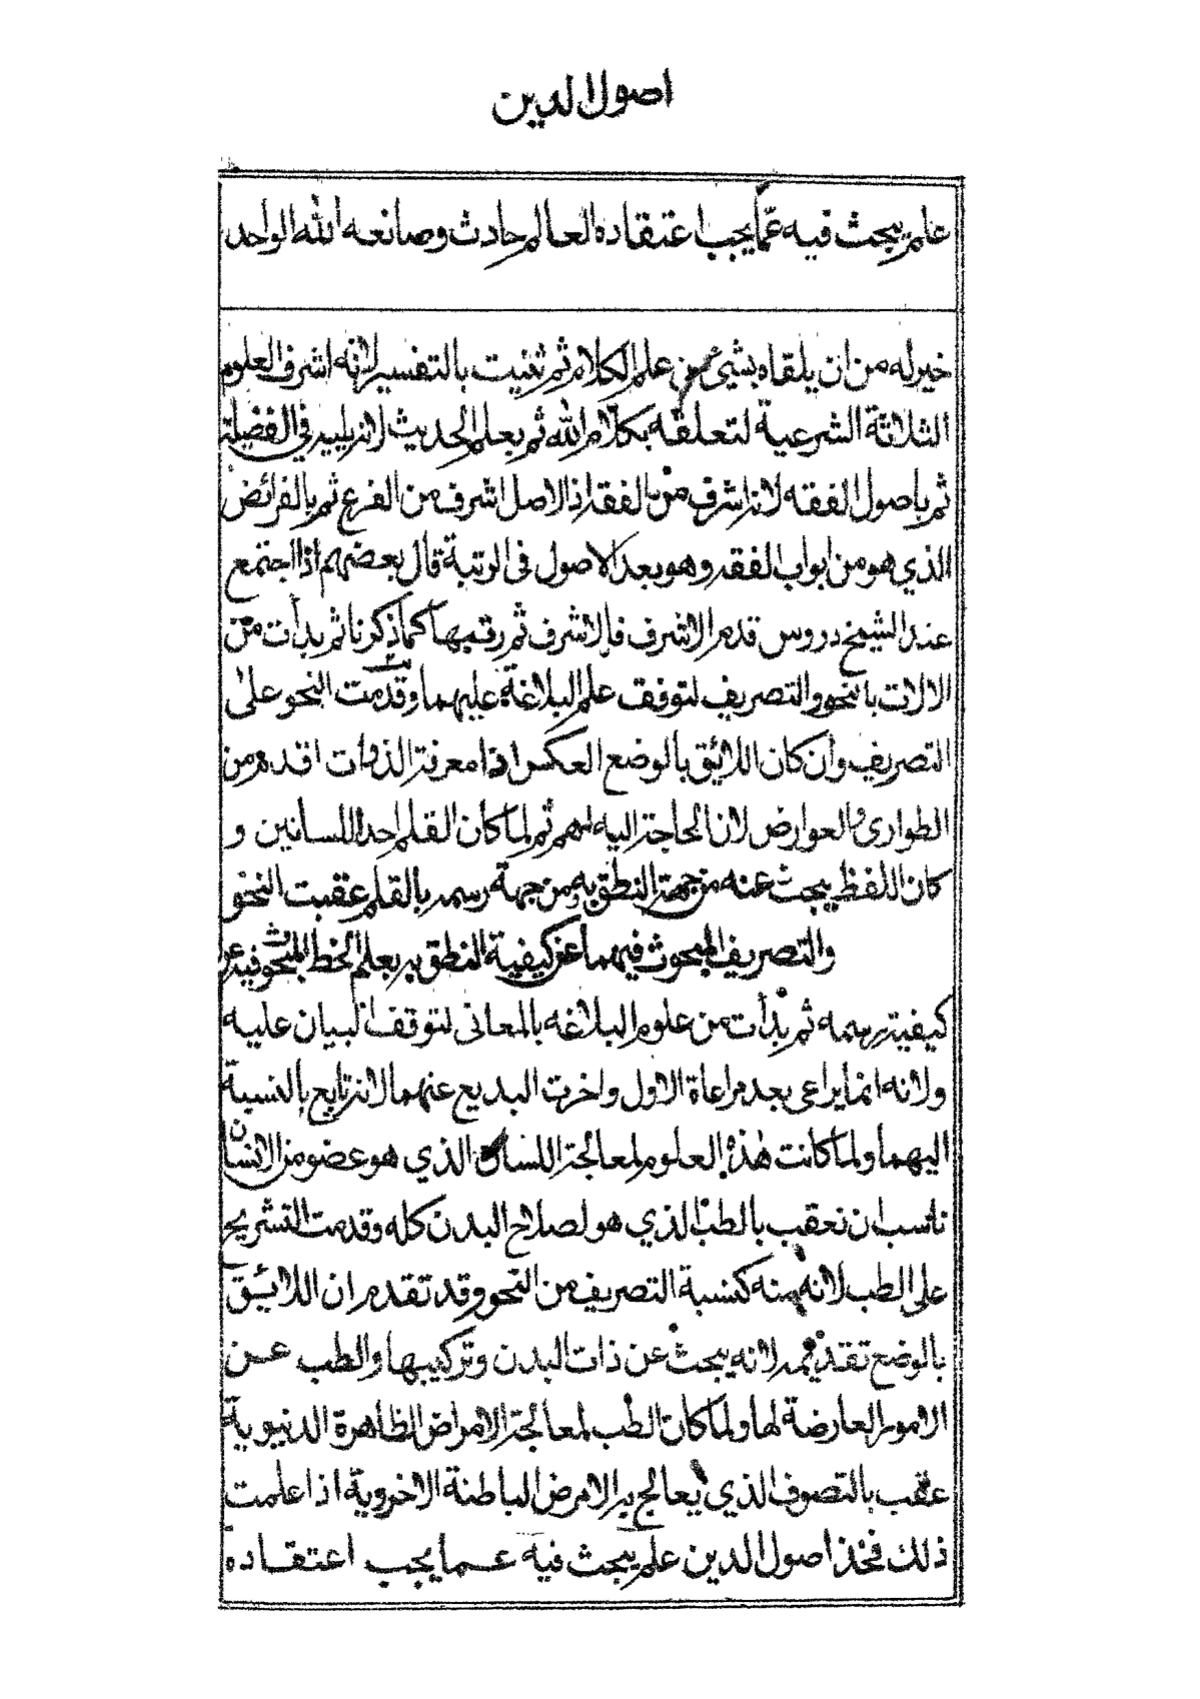 اصول الدين
علم يبحث فيه عمّا يجب اعتقاده العالم حادث وصانعه الله الواحد
خير له من ان يلقاه بشئ من علم الكلام ثم ثنيت بالتفسير لانه اشرف العلوم
الثلاثة الشرعية لتعلقه بكلام الله ثم بعلم الحديث لانه يليه في الفضيلة
ثم باصول الفقه لانه اشرف من الفقه اذ الاصل اشرف من الفرع ثم بالفرائض
الذي هو من ابواب الفقه وهو بعد الاصول في الرتبة قال بعضهم اذا اجتمع
عند الشيخ دروس قدم الاشرف فالاشرف ثم رتبها كما ذكرنا ثم بدأت من
الالات بالنحو والتصريف لتوقف علم البلاغة عليهما وقدمت النحو على
التصريف وان كان اللائق بالوضع العكس اذ معرفة الذوات اقدم من
الطوارى والعوارض لان الحاجة اليه اهم ثم لما كان القلم احد اللسانين و
كان اللفظ يبحث عنه من جهة النطق به ومن جهة رسمه بالقلم عقبت النحو
والتصريف المبحوث فيهما عن كيفية النطق به بعلم الخط المبحوث فيه عن
كيفية رسمه ثم بدأت من علوم البلاغه بالمعانى لتوقف البيان عليه
ولانه انما يراعى بعد مراعاة الاول واخرت البديع عنهما لانه تابع بالنسبة
اليهما ولما كانت هذه العلوم لمعالجة اللسان الذي هو عضو من الانسان
ناسب ان نعقب بالطب الذي هو لصلاح البدن كله وقدمت التشريح
على الطب لانه منه كنسبة التصريف من النحو وقد تقدم ان اللائق
بالوضع تقديمه لانه يبحث عن ذات البدن وتركيبها والطب عن
الامور العارضة لها ولما كان الطب لمعالجة الامراض الظاهرة الدنيوية
عقب بالتصوف الذي يعالج به الامرض الباطنة الاخروية اذا علمت
ذلك فخذ اصول الدين علم يبحث فيه عما يجب اعتقاده